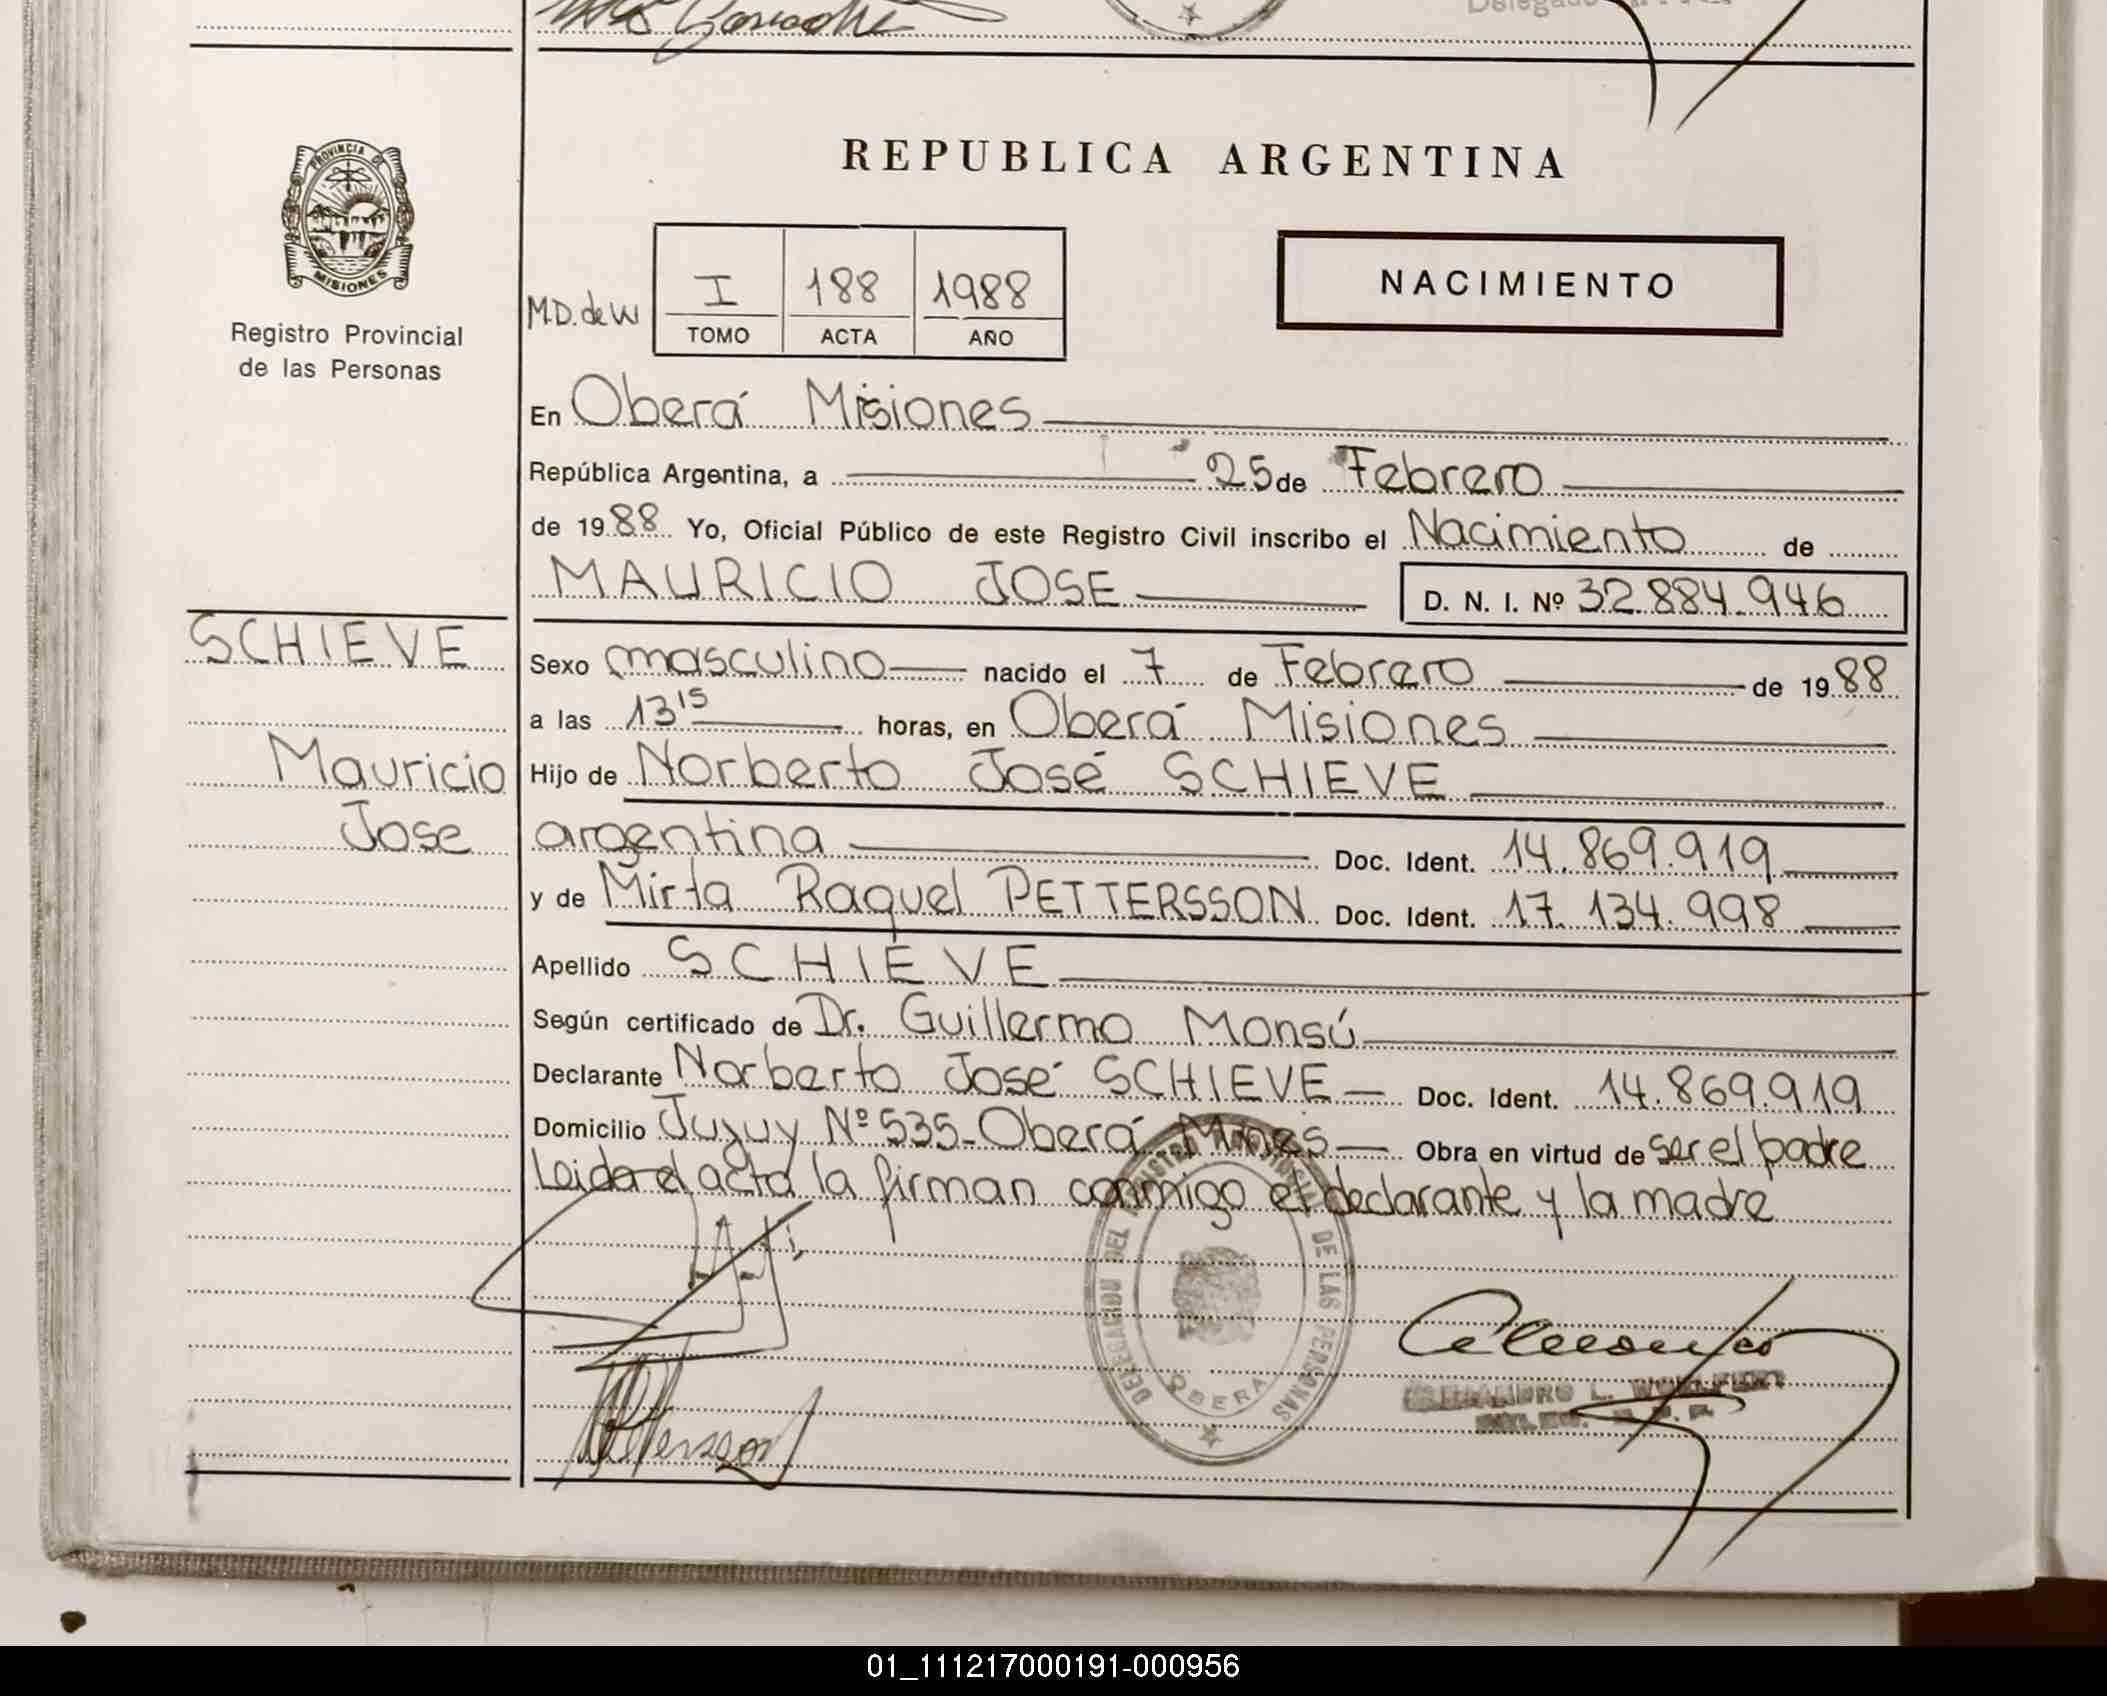 Delegado
PROVINCIA DE
MISIONES
Registro Provincial
de las Personas
REPUBLICA ARGENTINA
M.D. de W
I 188 1988
TOMO ACTA AÑO
NACIMIENTO
En Oberá Misiones
República Argentina, a 25 de Febrero
de 1988 Yo, Oficial Público de este Registro Civil inscribo el Nacimiento de
MAURICIO JOSE D. N. I. Nº 32.884.946
SCHIEVE
Mauricio
Jose
Sexo masculino nacido el 7 de Febrero de 1988
a las 13 15 horas, en Oberá Misiones
Hijo de Norberto José SCHIEVE
argentina Doc. Ident. 14.869.919
y de Mirta Raquel PETTERSSON Doc. Ident. 17.134.998
Apellido SCHIEVE
Según certificado de Dr. Guillermo Monsú
Declarante Norberto José SCHIEVE Doc. Ident. 14.869.919
Domicilio Jujuy Nº 535-Oberá Mnes Obra en virtud de ser el padre
Leida el acta la firman conmigo el declarante y la madre
DELEGACION DEL REGISTRO PROVINCIAL DE LAS PERSONAS
OBERA
01_111217000191-000956